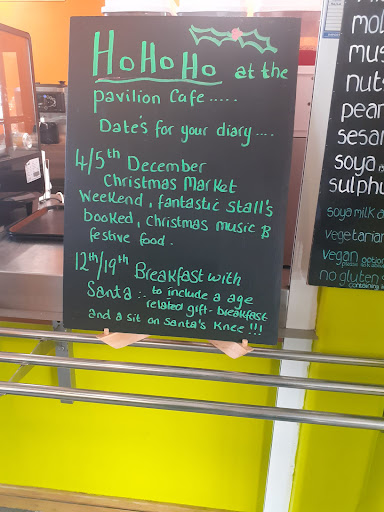 HoHoHo at the
pavilion Cafe.....
Date's for your diary....
4/5th December
Christmas Market
Weekend, fantastic Stall's
booked, Christmas music &
festive food.
12th/19th Breakfast with
Santa :- to include a age
related gift- breakfast
and a sit on Santa's Knee !!!
mus
nuts
pear
sesam
soya
sulphu
soya milk a
vegetarian
vegan option
no gluten
containing